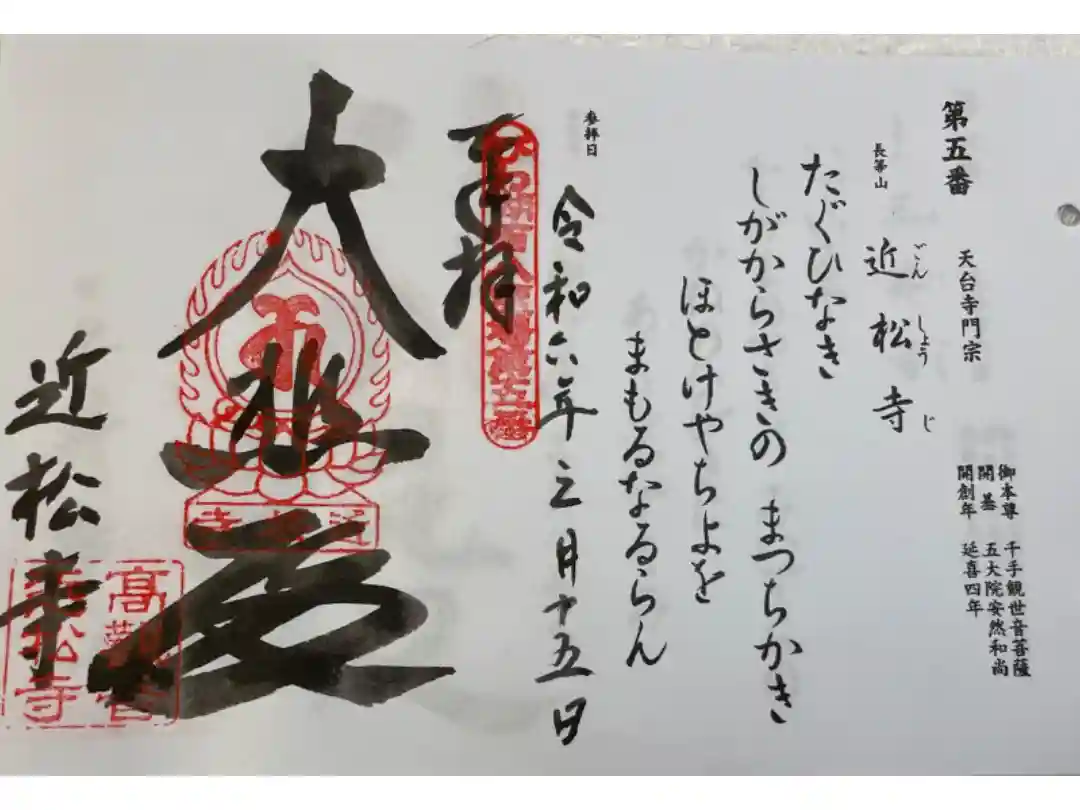 第五番 天台寺門宗
御本尊 千手観世音菩薩
開基 五大院安然和尚
開創年 延喜四年
長等山 近松寺
ごんしょうじ
たぐひなき
しがからさきの まつちかき
ほとけやちよを
まもるなるらん
参拝日
令和六年三月十五日
奉拝
びわ湖百八霊場第五番
大悲
近松寺
近松寺
高観音
近松寺